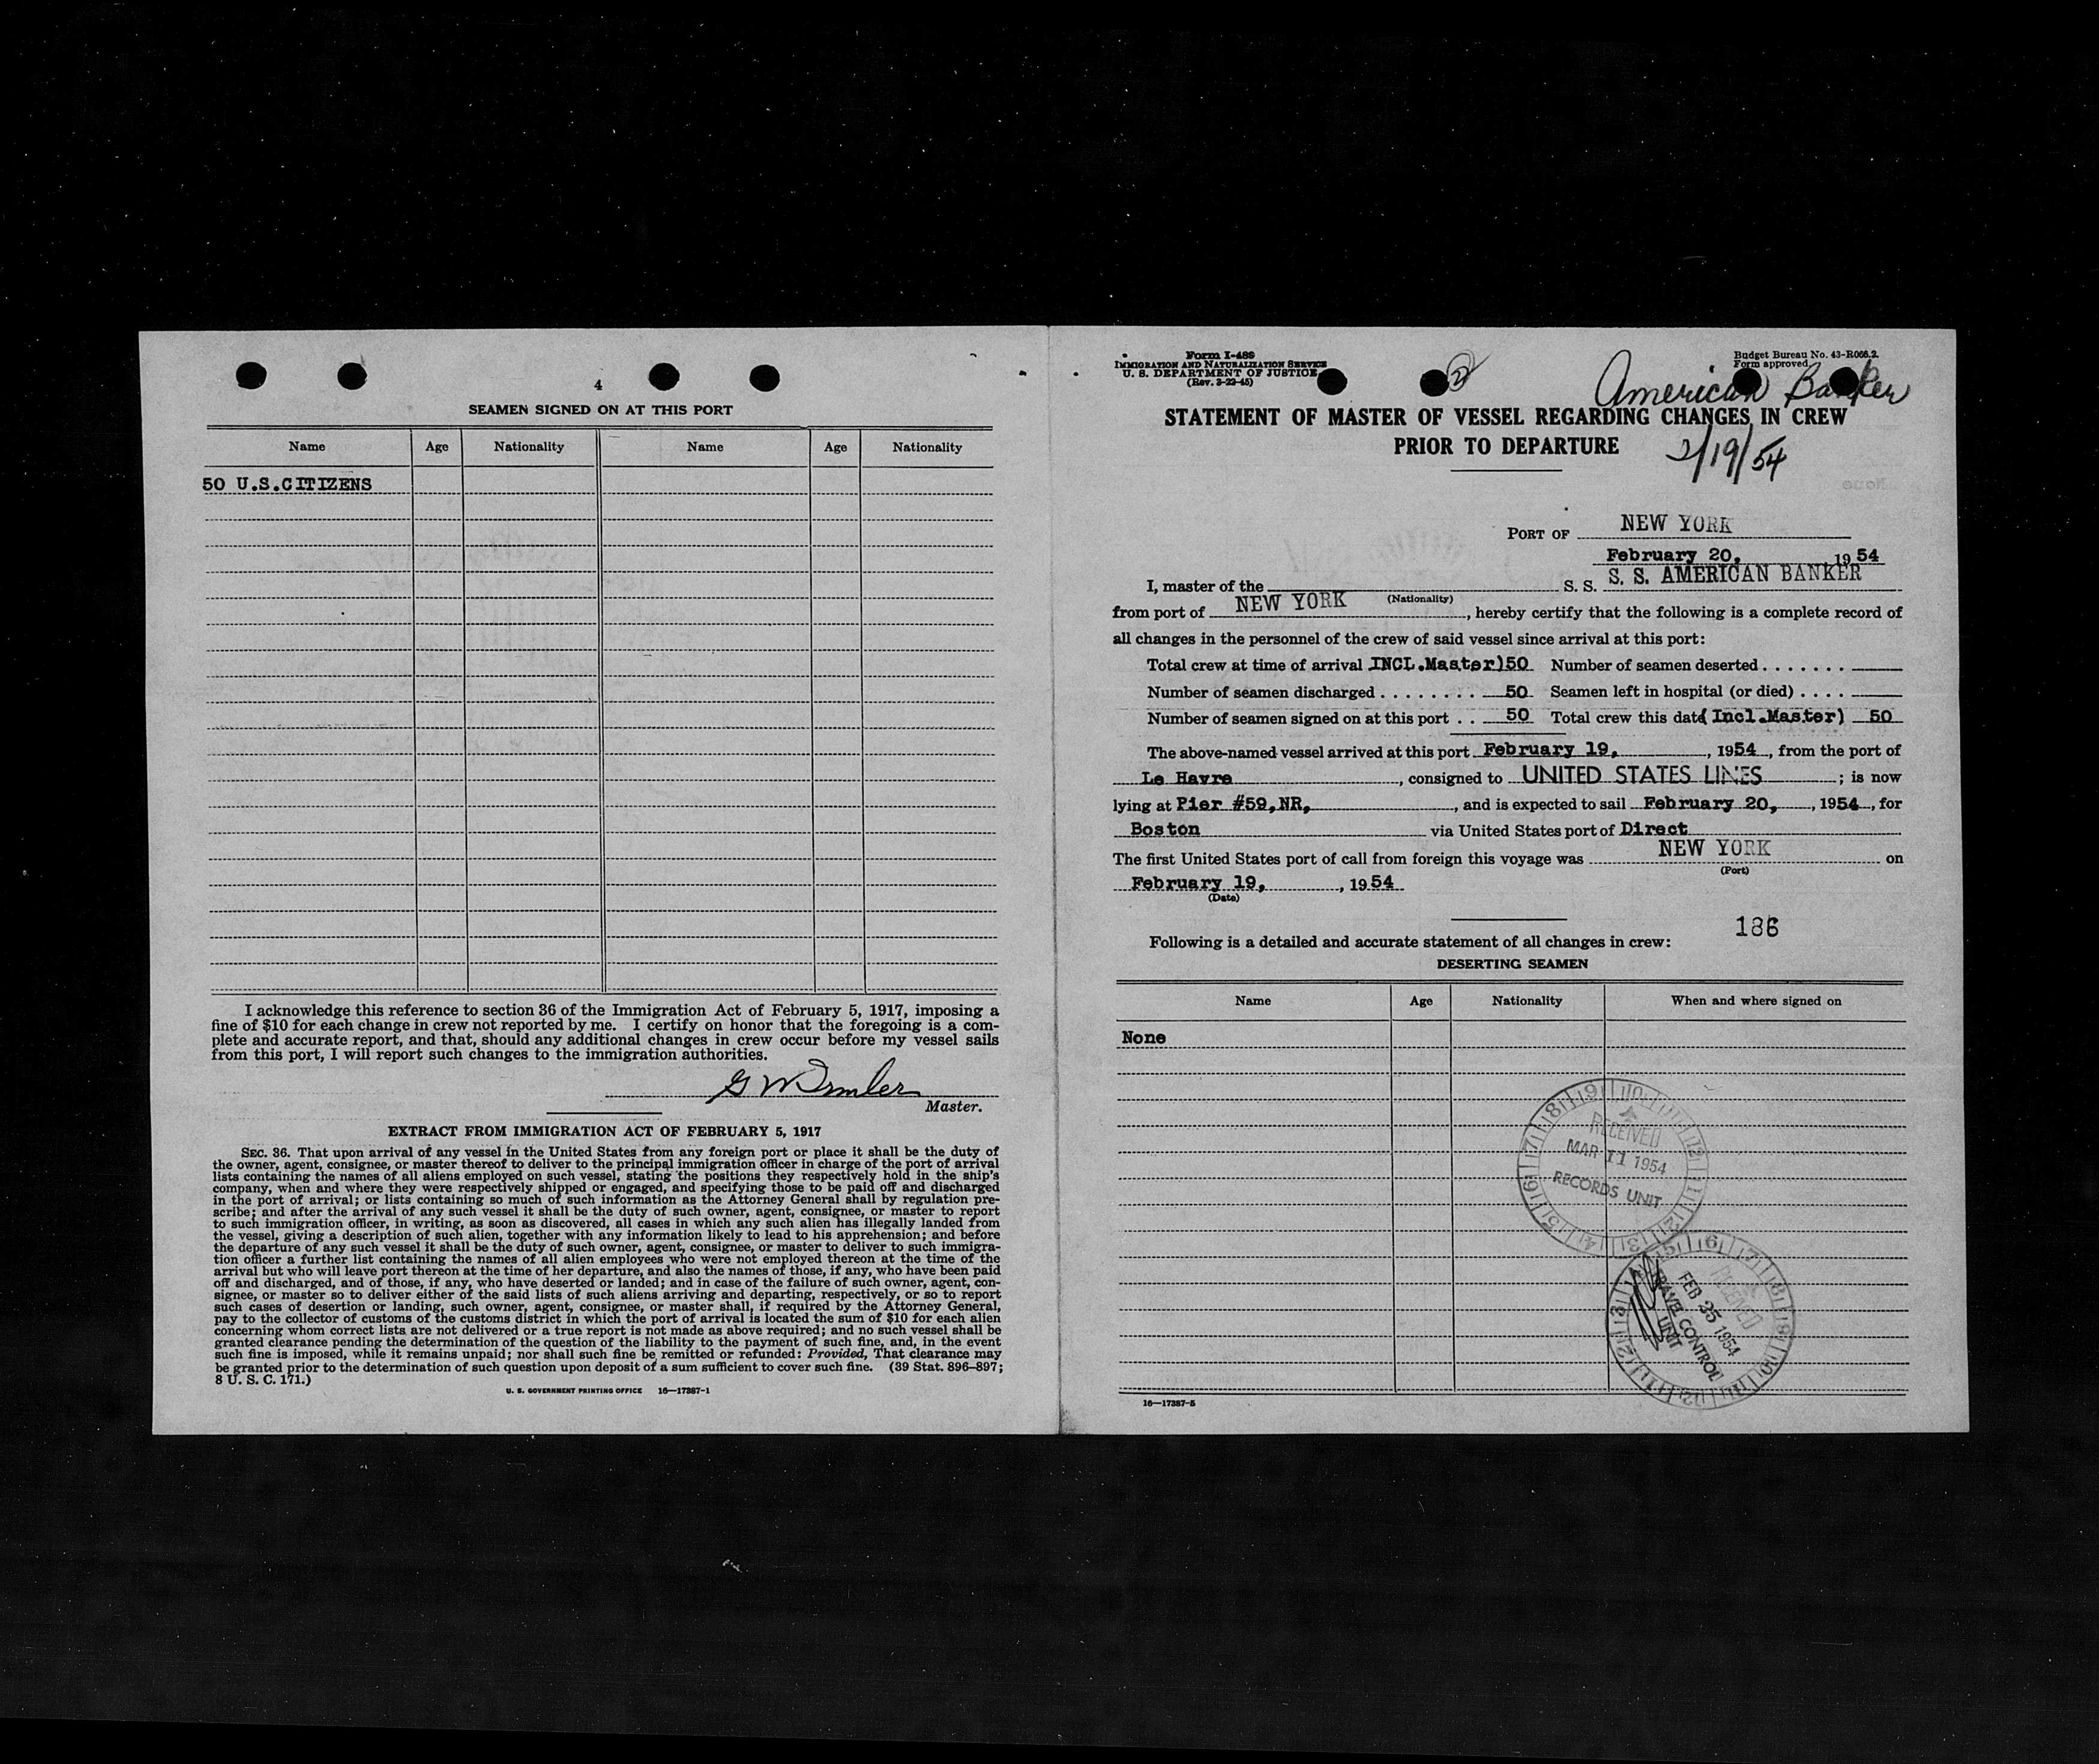 4
SEAMEN SIGNED ON AT THIS PORT
Name Age Nationality Name Age Nationality
50 U.S.CITIZENS
I acknowledge this reference to section 36 of the Immigration Act of February 5, 1917, imposing a
fine of $10 for each change in crew not reported by me. I certify on honor that the foregoing is a com-
plete and accurate report, and that, should any additional changes in crew occur before my vessel sails
from this port, I will report such changes to the immigration authorities.
Master.
EXTRACT FROM IMMIGRATION ACT OF FEBRUARY 5, 1917
SEC. 36. That upon arrival of any vessel in the United States from any foreign port or place it shall be the duty of
the owner, agent, consignee, or master thereof to deliver to the principal immigration officer in charge of the port of arrival
lists containing the names of all aliens employed on such vessel, stating the positions they respectively hold in the ship's
company, when and where they were respectively shipped or engaged, and specifying those to be paid off and discharged
in the port of arrival; or lists containing so much of such information as the Attorney General shall by regulation pre-
scribe; and after the arrival of any such vessel it shall be the duty of such owner, agent, consignee, or master to report
to such immigration officer, in writing, as soon as discovered, all cases in which any such alien has illegally landed from
the vessel, giving a description of such alien, together with any information likely to lead to his apprehension; and before
the departure of any such vessel it shall be the duty of such owner, agent, consignee, or master to deliver to such immigra-
tion officer a further list containing the names of all alien employees who were not employed thereon at the time of the
arrival but who will leave port thereon at the time of her departure, and also the names of those, if any, who have been paid
off and discharged, and of those, if any, who have deserted or landed; and in case of the failure of such owner, agent, con-
signee, or master so to deliver either of the said lists of such aliens arriving and departing, respectively, or so to report
such cases of desertion or landing, such owner, agent, consignee, or master shall, if required by the Attorney General,
pay to the collector of customs of the customs district in which the port of arrival is located the sum of $10 for each alien
concerning whom correct lists are not delivered or a true report is not made as above required; and no such vessel shall be
granted clearance pending the determination of the question of the liability to the payment of such fine, and, in the event
such fine is imposed, while it remains unpaid; nor shall such fine be remitted or refunded: Provided, That clearance may
be granted prior to the determination of such question upon deposit of a sum sufficient to cover such fine. (39 Stat. 896-897;
8 U. S. C. 171.)
U. S. GOVERNMENT PRINTING OFFICE 16—17387-1
Form I-489
IMMIGRATION AND NATURALIZATION SERVICE
U. S. DEPARTMENT OF JUSTICE
(Rev. 3-22-45)
2
Budget Bureau No. 43-R066.2.
Form approved.
American Banker
STATEMENT OF MASTER OF VESSEL REGARDING CHANGES IN CREW
PRIOR TO DEPARTURE
2/19/54
PORT OF NEW YORK
February 20, 1954
I, master of the S. S. S. S. AMERICAN BANKER
(Nationality)
from port of NEW YORK, hereby certify that the following is a complete record of
all changes in the personnel of the crew of said vessel since arrival at this port:
Total crew at time of arrival INCL.Master)50 Number of seamen deserted . . . . . . .
Number of seamen discharged . . . . . . . . 50 Seamen left in hospital (or died) . . . .
Number of seamen signed on at this port . . 50 Total crew this date( Incl.Master) 50
The above-named vessel arrived at this port February 19, , 1954, from the port of
Le Havre, consigned to UNITED STATES LINES; is now
lying at Pier #59,NR, , and is expected to sail February 20, , 1954, for
Boston via United States port of Direct
The first United States port of call from foreign this voyage was NEW YORK on
(Port)
February 19, , 1954
(Date)
186
Following is a detailed and accurate statement of all changes in crew:
DESERTING SEAMEN
Name Age Nationality When and where signed on
None
RECEIVED
MAR 11 1954
RECORDS UNIT
RECEIVED
FEB 25 1954
TRAVEL CONTROL
UNIT
16—17387-5